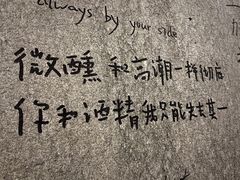 always by your side
微醺和高潮一样彻底
你和酒精我只能失去其一